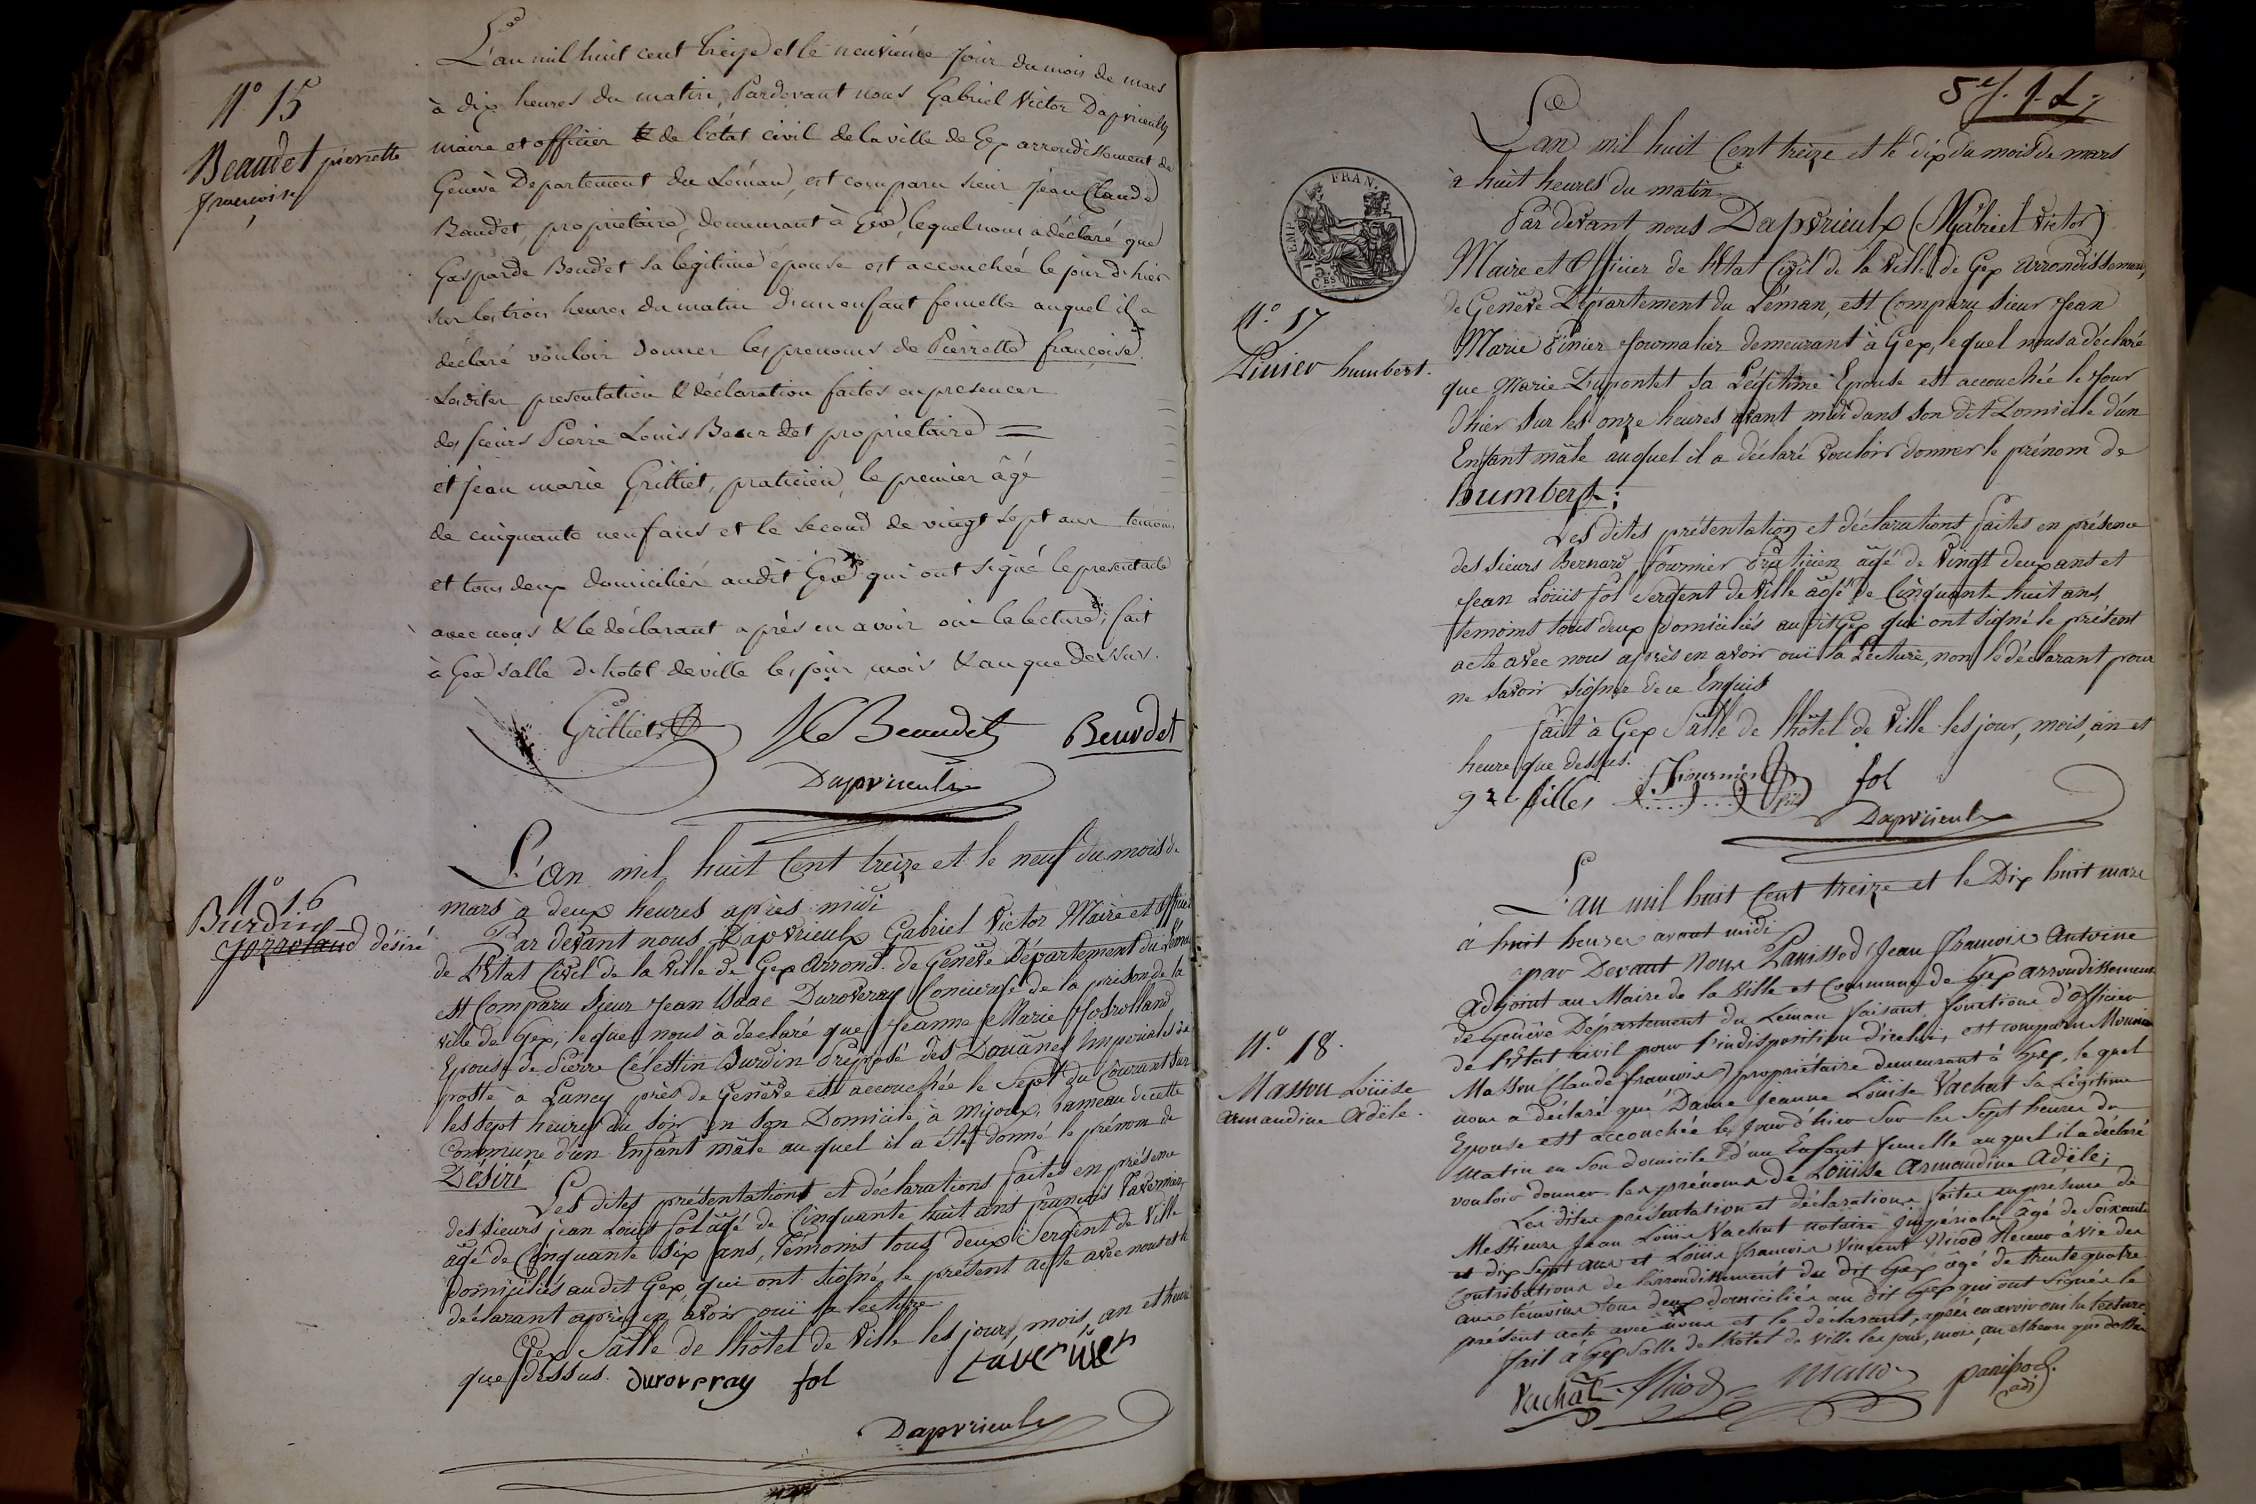 N° 15
Beaudet pierrette
françoise
L'an mil huit cent treize et le neuvième jour du mois de mars
à dix heures du matin, Pardevant nous Gabriel Victor Dapvrieulx
maire et officier de l'état civil de la ville de Gex arrondissement de
Genève Departement du Léman, est comparu sieur Jean Claude
Baudet, proprietaire, demeurant à Gex, lequel nous a déclaré que
Gasparde Boudet sa legitime épouse est accouchée le jour d'hier
sur les trois heures du matin d'un enfant femelle auquel il a
déclaré vouloir donner les prenoms de Pierrette françoise.
Lesdites presentation & déclaration faites en presence
des sieurs Pierre Louis Beaudet proprietaire =
et Jean marie Grilliet, praticien, le premier âgé
de cinquante neuf ans et le second de vingt sept ans temoins
et tous deux domiciliés audit Gex qui ont signé le present acte
avec nous & le déclarant après en avoir ouï la lecture, fait
à Gex salle d'hotel de ville les jour, mois & an que dessus.
Grilliet JC Beaudet Beaudet
Dapvrieulx
N° 16
Burdin
Jozroland désiré
L'an mil huit Cent treize et le neuf du mois de
mars à deux heures après midi
Par devant nous Dapvrieulx Gabriel Victor Maire et officier
de L'Etat Civil de la Ville de Gex Arrond.t de Genève Département du Léman
est Comparu Sieur Jean Isaac Duroveray Concierge de la prison de la
ville de Gex, lequel nous à déclaré que Jeanne Marie Josrolland
Epouse de Pierre Célestin Burdin Préposé des Douânes Impériales à la
poste à Lancy près de Genève est accouchée le Sept du Courant sur
les sept heures du soir en son Domicile à Mijoux, hameau de cette
Commune d'un Enfant mâle au quel il a été donné le prénom de
Désiré
Les dites présentations et déclarations faites en présence
des sieurs jean Louis fol âgé de Cinquante huit ans françois Tavernier
âgé de Cinquante six ans, Témoins tous deux Sergent de Ville
domiciliés audit Gex, qui ont signé le présent acte avec nous et le
déclarant après en avoir ouï la lecture
Gex Salle de lhôtel de Ville les jour, mois, an et heure
que dessus. duroveray fol tavernier
Dapvrieulx
5e f. f. L.
L'an mil huit Cent treize et le dix du mois de mars
à huit heures du matin
Par devant nous Dapvrieulx (Gabriel Victor)
Maire et Officier de l'Etat Civil de la Ville de Gex arrondissement
de Genève Département du Léman, est Comparu Sieur Jean
Marie Pinier Journalier demeurant à Gex, lequel nous a déclaré
que Marie Dupontet sa Légitime Epouse est accouchée le Jour
d'hier sur les onze heures avant midi dans son dit Domicile d'un
Enfant mâle auquel il a déclaré vouloir donner le prénom de
humbert;
FRAN.
EMP.
75 CES
N° 17
Pinier humbert.
Les dites présentation et déclarations faites en présence
des sieurs Bernard Fournier Praticien âgé de Vingt deux ans et
Jean Loüis fol Sergent de Ville âgé de Cinquante huit ans,
témoins tous deux domiciliés audit Gex qui ont signé le présent
acte avec nous après en avoir ouï la Lecture, non le déclarant pour
ne savoir signer de ce Enquis
Fait à Gex Salle de lhôtel de Ville les jour, mois, an et
heure que dessus.
Fournier fol
Dapvrieulx
N° 18.
Masson Loüise
armandine Adèle.
L'an mil huit Cent treize et le Dix huit mars
à huit heures avant midi
par Devant Nous Panissod Jean francois Antoine
adjoint au Maire de la Ville et Commune de Gex arrondissement
de Genève Département du Leman faisant fonctions d'officier
de l'Etat civil pour l'indisposition d'icelui, est comparu Monsieur
Masson (Claude francois) propriétaire demeurant à Gex, le quel
nous a déclaré que Dame Jeanne Loüise Vachat sa Légitime
Epouse est accouchée le Jour d'hier sur les Sept heures du
Matin en son domicile d'un Enfant femelle auquel il a déclaré
vouloir donner les prénoms de Loüise Armandine Adèle;
Les dites présentation et déclarations faites en présence de
Messieurs Jean Louis Vachat notaire impérial âgé de Soixante
et dix Sept ans et Louis francois Vincent Nicod Receveur à Vie des
Contributions de l'arrondissement du dit Gex âgé de trente quatre
ans témoins tous deux domiciliés au dit Gex qui ont signés le
présent acte avec nous et le déclarant, après en avoir oui la lecture.
fait à Gex Salle de l'hotel de Ville les jour, mois, an et heure que dessus
Vachat Nicod Masson panissod.
adj